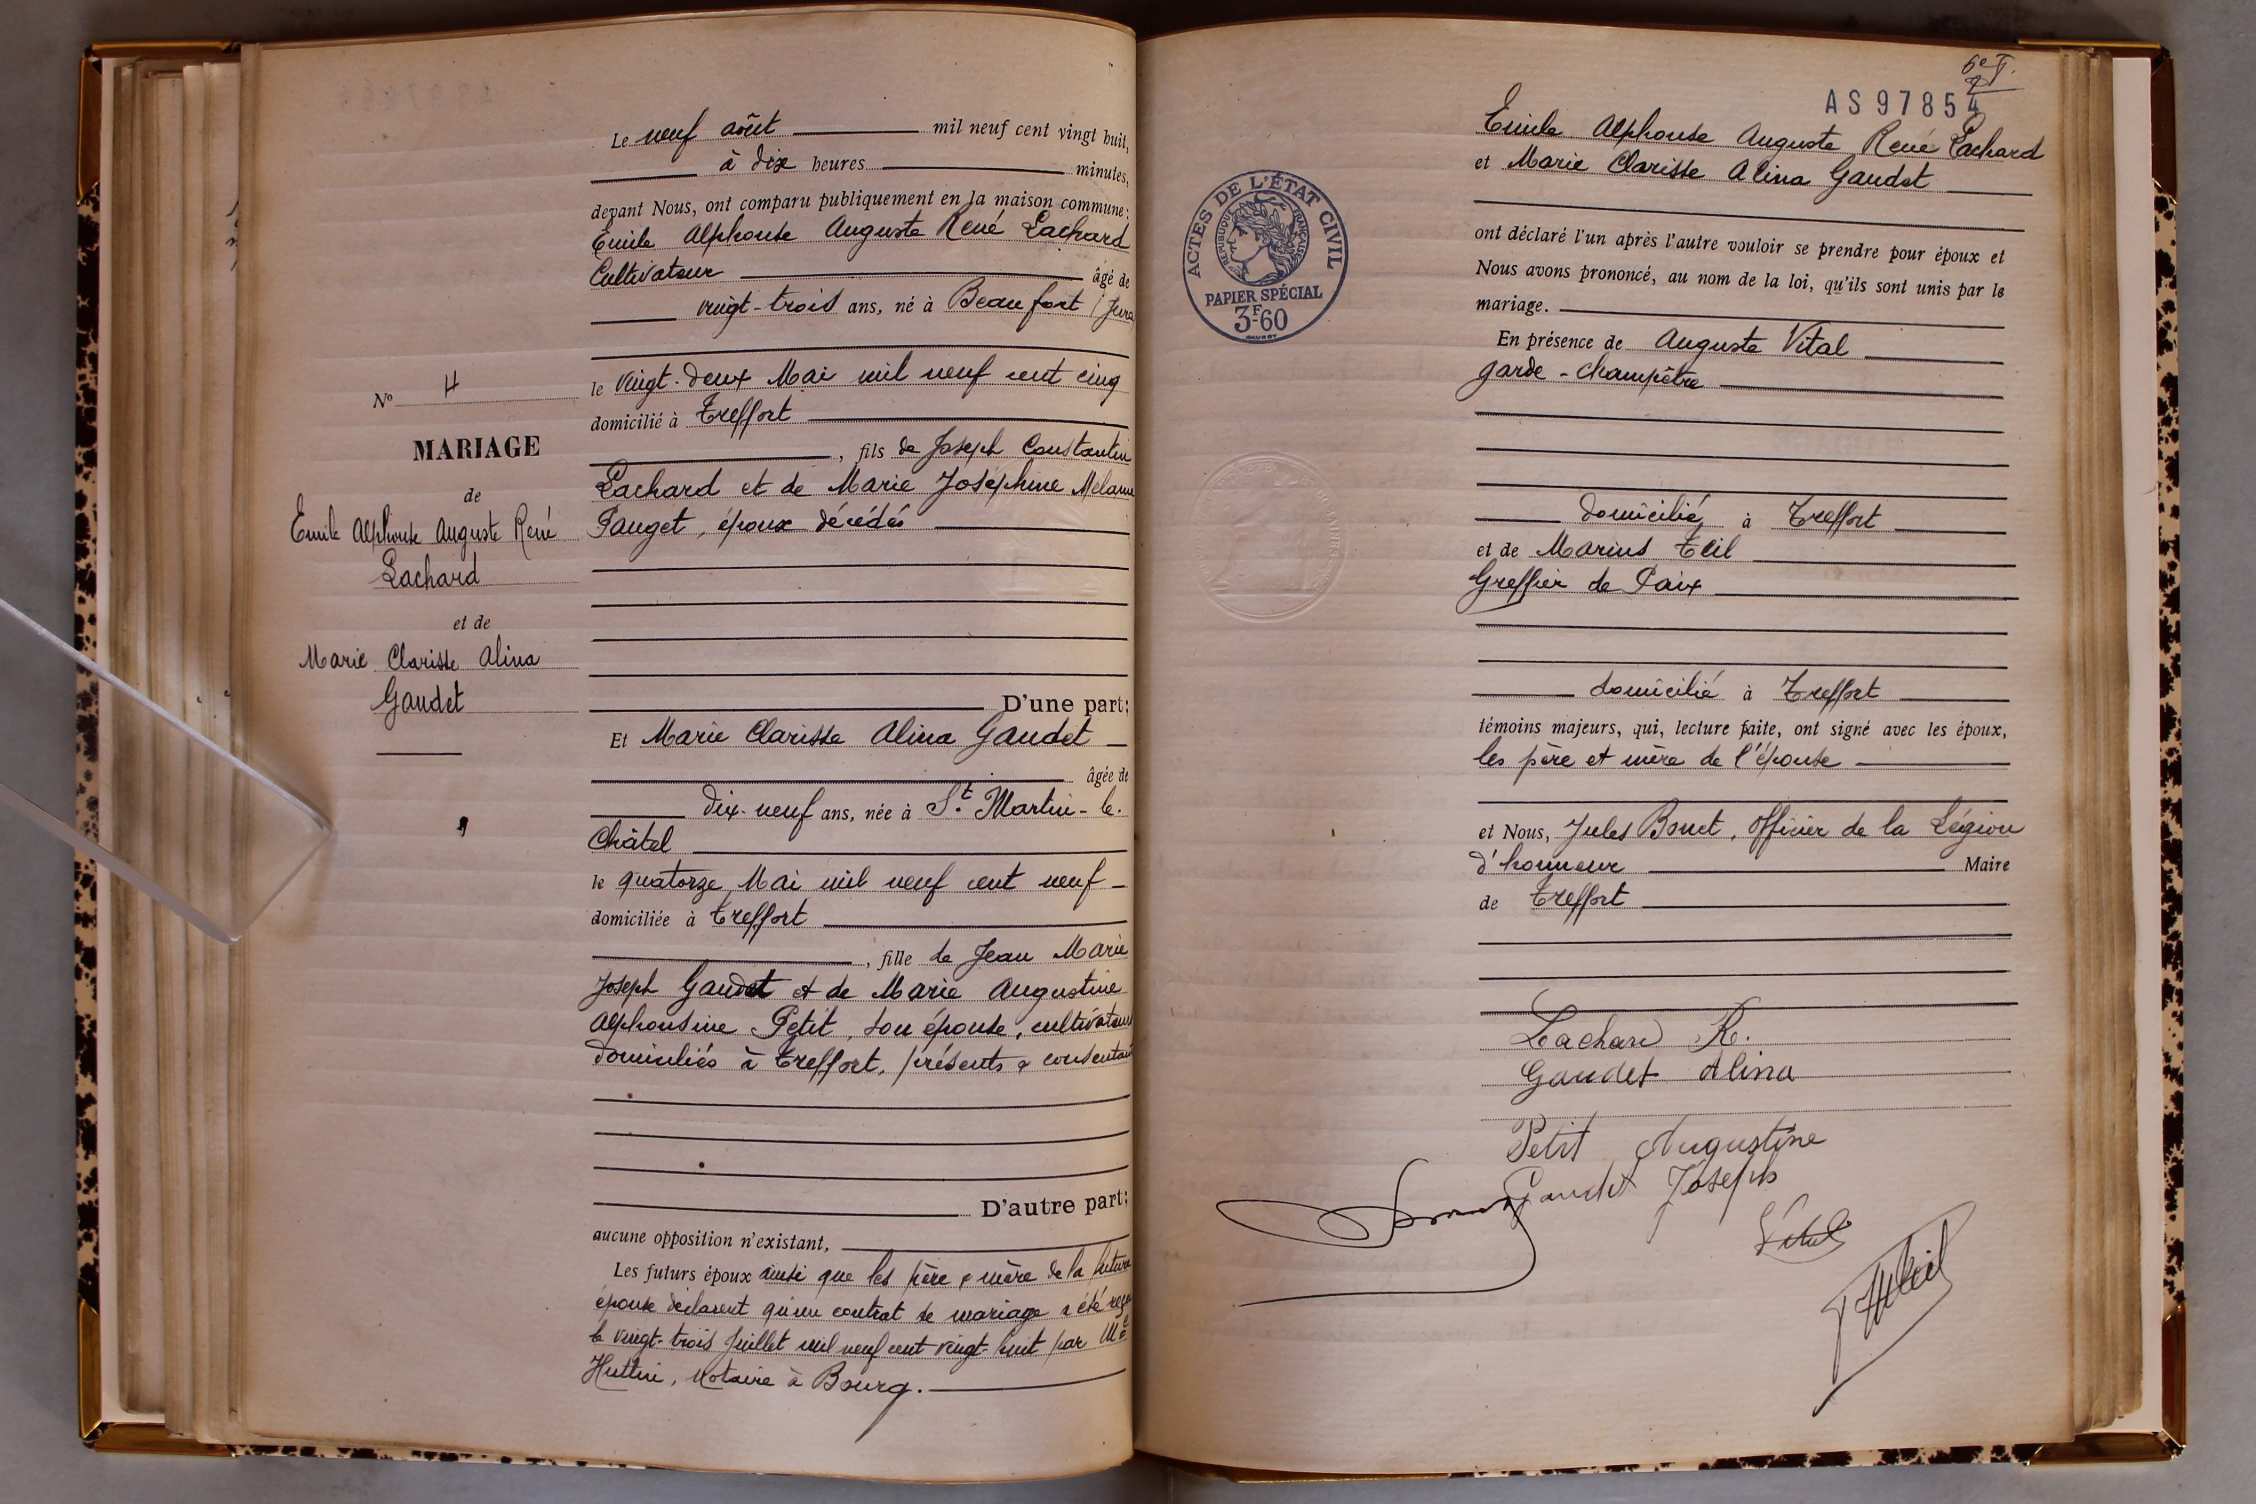 Le neuf août mil neuf cent vingt huit,
à dix heures minutes,
devant Nous, ont comparu publiquement en la maison commune:
Emile Alphonse Auguste René Lachard
Cultivateur âgé de
vingt-trois ans, né à Beaufort (Jura
le vingt-deux Mai mil neuf cent cinq
domicilié à Treffort
, fils de Joseph Constantin
Lachard et de Marie Joséphine Melanie
Pauget, époux décédés
D'une part;
Et Marie Clarisse Alina Gaudet
âgée de
dix-neuf ans, née à St. Martin-le-
Châtel
le quatorze Mai mil neuf cent neuf
domiciliée à Treffort
, fille de Jean Marie
Joseph Gaudet et de Marie Augustine
Alphonsine Petit, son épouse, cultivateurs
domiciliés à Treffort, présents & consentant
D'autre part;
aucune opposition n'existant,
Les futurs époux ainsi que les père & mère de la future
épouse déclarent qu'un contrat de mariage a été reçu
le vingt-trois Juillet mil neuf cent vingt-huit par Me
Huttin, Notaire à Bourg.
No 4
MARIAGE
de
Emile Alphonse Auguste René
Lachard
et de
Marie Clarisse Alina
Gaudet
AS97854
Emile Alphonse Auguste René Lachard
et Marie Clarisse Alina Gaudet
ont déclaré l'un après l'autre vouloir se prendre pour époux et
Nous avons prononcé, au nom de la loi, qu'ils sont unis par le
mariage.
En présence de Auguste Vital
garde-champêtre
domicilié à Treffort
et de Marius Teil
Greffier de Paix
domicilié à Treffort
témoins majeurs, qui, lecture faite, ont signé avec les époux,
les père et mère de l'épouse
et Nous, Jules Bonet, officier de la Légion
d'honneur Maire
de Treffort
Lachard R.
Gaudet Alina
Petit Augustine
Gaudet Joseph
Vital
ACTES DE L'ÉTAT CIVIL
RÉPUBLIQUE FRANÇAISE
PAPIER SPÉCIAL
3F60